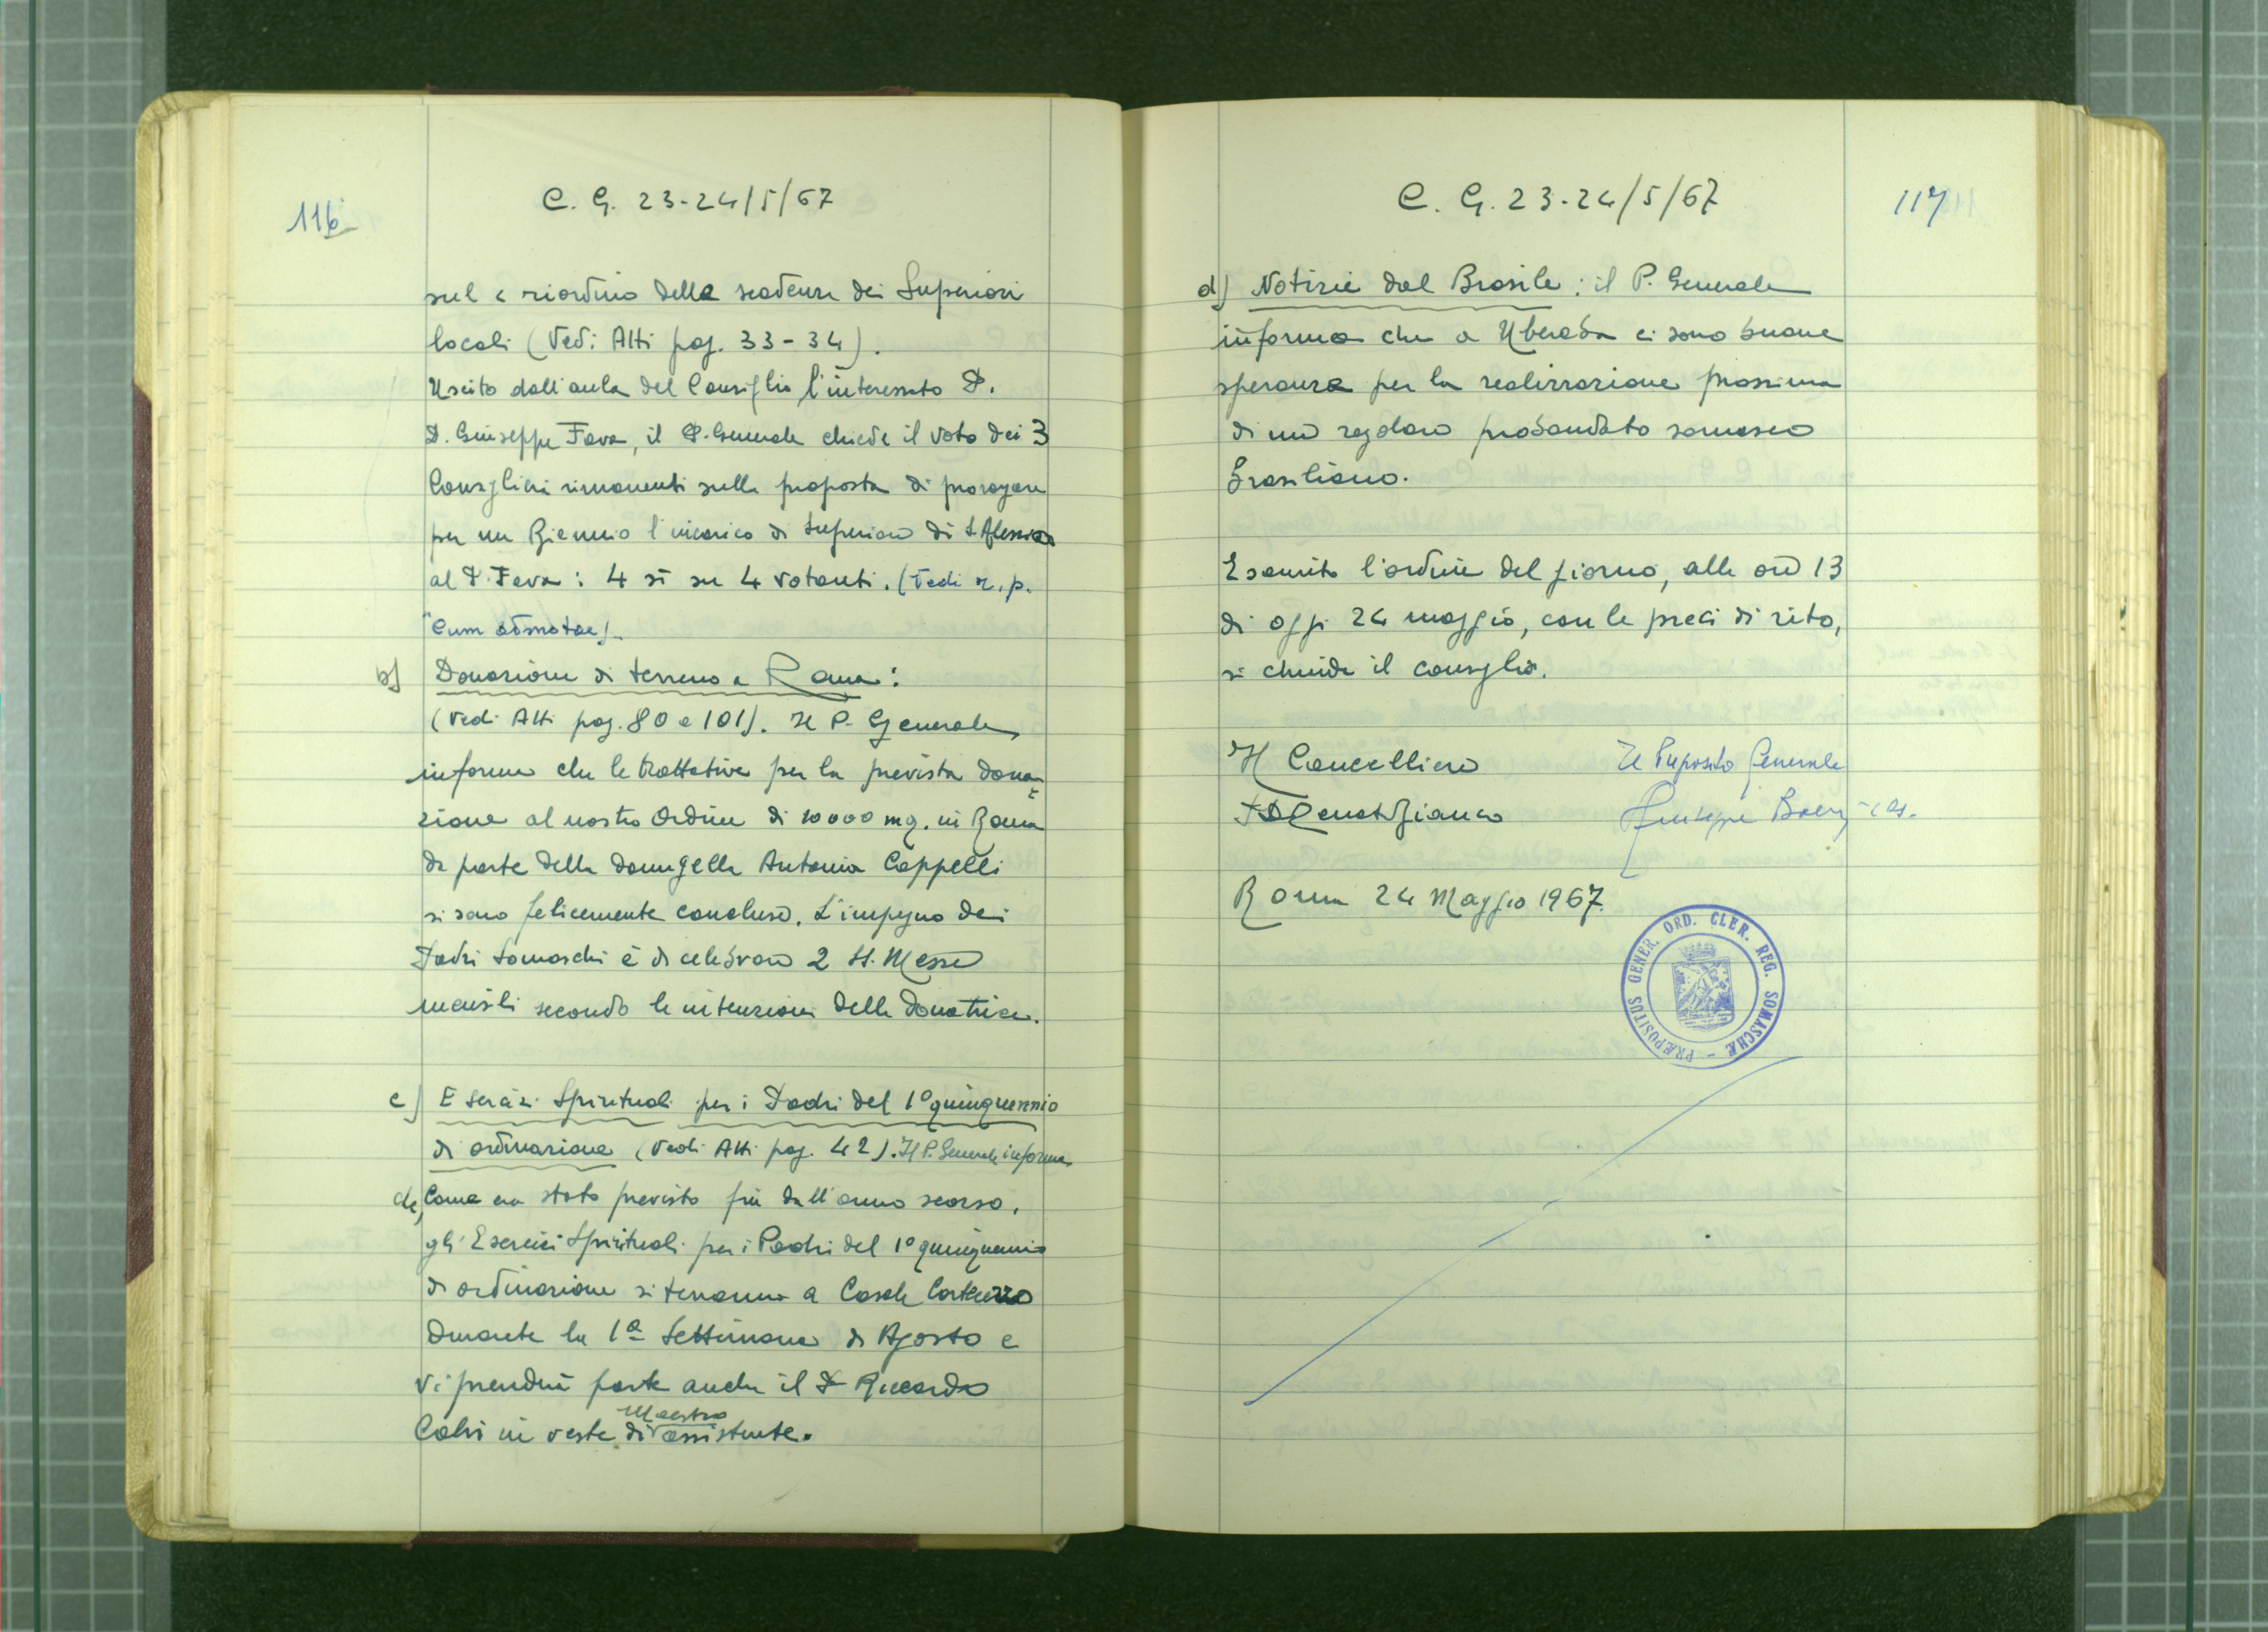 116
C. G. 23-24/5/67
sul riordino delle scadenze dei Superiori
locali (Vedi Atti pag. 33-34).
Uscito dall'aula del Consiglio l'interessato P.
D. Giuseppe Fava, il P. Generale chiede il voto dei 3
Consiglieri rimanenti sulla proposta di prorogare
per un Biennio l'incarico di Superiore di S. Alessio
al P. Fava: 4 sì su 4 votanti. (Vedi r. p.
"Cum
b) Donazione di terreno a Roma:
(Vedi Atti pag. 80 e 101). Il P. Generale
informa che le trattative per la prevista dona=
zione al nostro Ordine di 10000 mq. in Roma
da parte della donzella Antonia Cappelli
si sono felicemente concluse. L'impegno dei
Padri Somaschi è di celebrare 2 SS. Messe
mensili secondo le intenzioni della donatrice.
c) Esercizi Spirituali per i Padri del 1° quinquennio
di ordinazione (Vedi Atti pag. 42). Il P. Generale informa
che, Come era stato previsto fin dall'anno scorso,
gli Esercizi Spirituali per i Padri del 1° quinquennio
di ordinazione si terranno a Casale Corte Cerro
durante la 1ª Settimana di Agosto e
vi prenderà parte anche il P. Riccardo
Calvi in veste di Maestro assistente.
C. G. 23-24/5/67
117
d) Notizie dal Brasile: il P. Generale
informa che a Uberaba ci sono buone
speranze per la realizzazione prossima
di un regolare probandato somasco
brasiliano.
Esaurito l'ordine del giorno, alle ore 13
di oggi 24 maggio, con le preci di rito,
si chiude il consiglio.
Il Cancelliere
Il Preposito Generale
P. D. Renato Bianco
Giuseppe Boeris crs.
Roma 24 Maggio 1967.
PRÆPOSITUS GENER. ORD. CLER. REG. SOMASCHÆ -